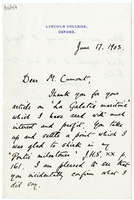 30/67
LINCOLN COLLEGE,
OXFORD.
June 17. 1903.
Dear M. Cumont,
Thank you for your
article on 'La Galatie maritime'
which I have read with much
interest and profit. You take
up and settle a point which I
was glad to shirk in my
'Pontica' JHS. xx p.
I am pleased to see that
you incidentally confirm what I
did say.